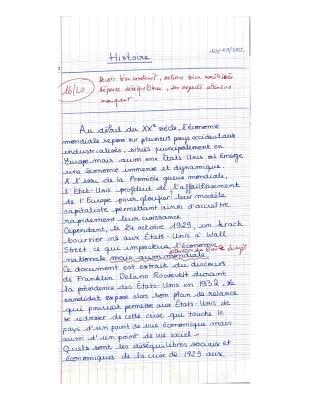 10/10/2022
Histoire
16/20
Devoir bien construit, notions bien maîtrisées
Réponse déséquilibrée, des aspects attendus
manquent.
Au début du XXe siècle, l'économie
mondiale repose sur plusieurs pays occidentaux
industrialisés, situés principalement en
Europe mais aussi aux États-Unis où émerge
une économie immense et dynamique.
A l'issue de la Première guerre mondiale,
l'État-Unis profitent de l'affaiblissement
de l'Europe pour glorifier leur modèle
capitaliste permettant ainsi d'accroître
rapidement leur croissance.
Cependant, le 24 octobre 1929, un krach
boursier né aux États-Unis à Wall
Street ce qui impactera l'économie
nationale mais aussi mondiale.
Ce document est extrait du discours
de Franklin Delano Roosevelt durant
la présidence des États-Unis en 1932. Le
candidat expose alors son plan de relance
qui pourrait permettre aux États-Unis de
se redresser de cette crise qui touche le
pays d'un point de vue économique mais
aussi d'un point de vue social.
Quels sont les déséquilibres sociaux et
économiques de la crise de 1929 aux